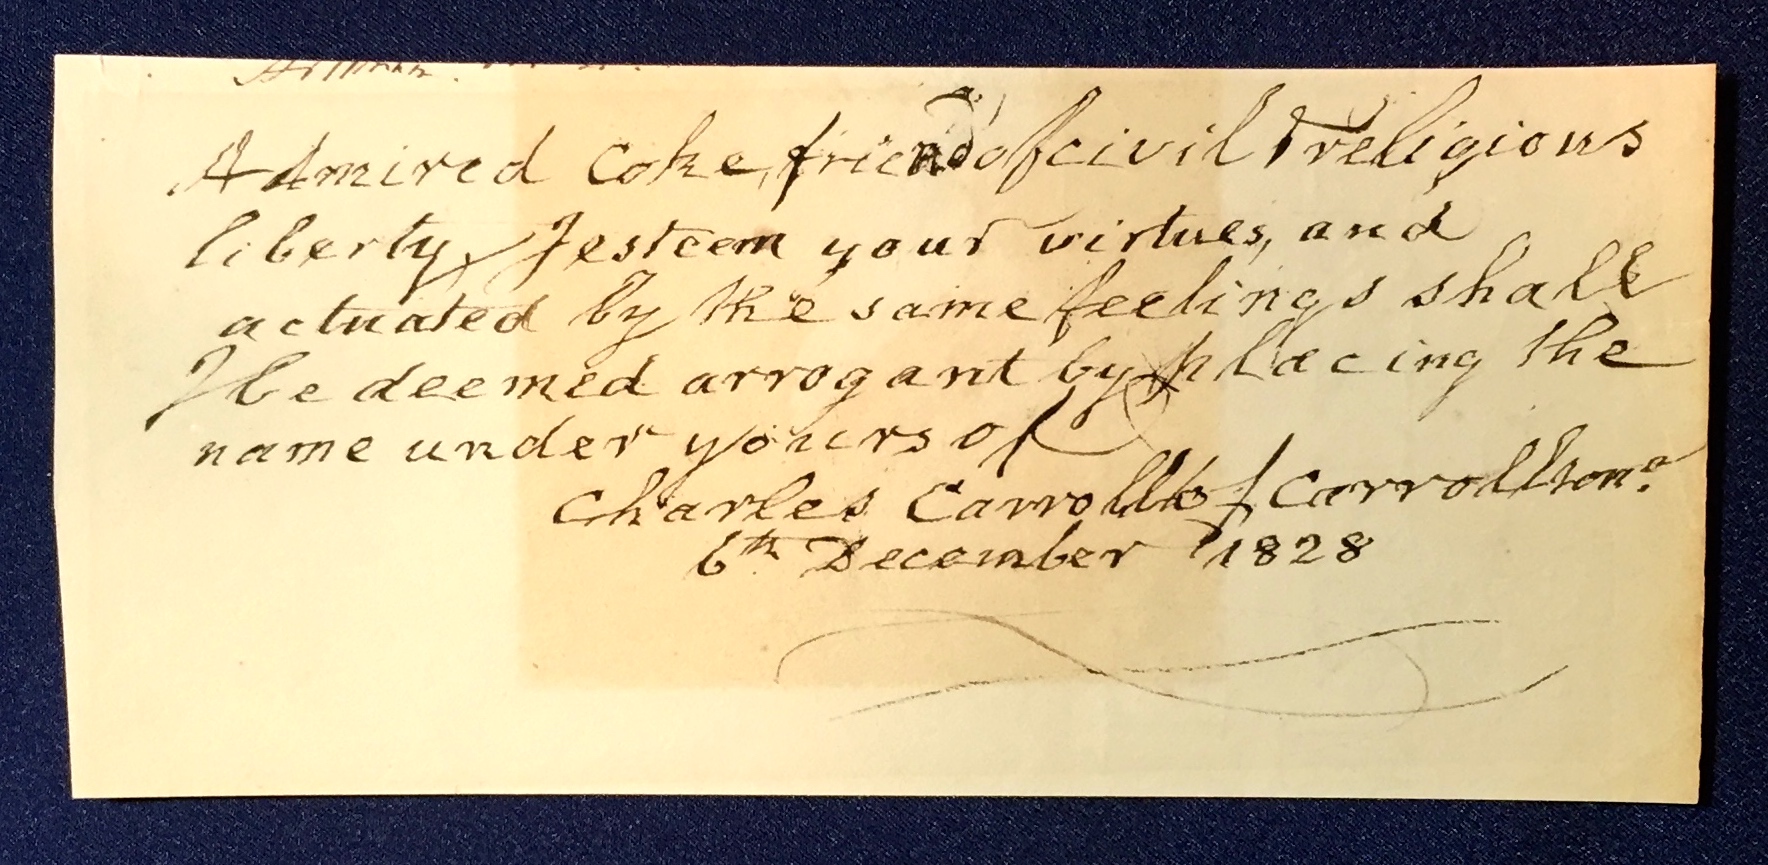 Admired Coke, friend of civil & religious
liberty, I esteem your virtues, and
actuated by the same feelings shall
I be deemed arrogant by placing the
name under yours of
Charles Carroll of Carrollton?
6th December 1828